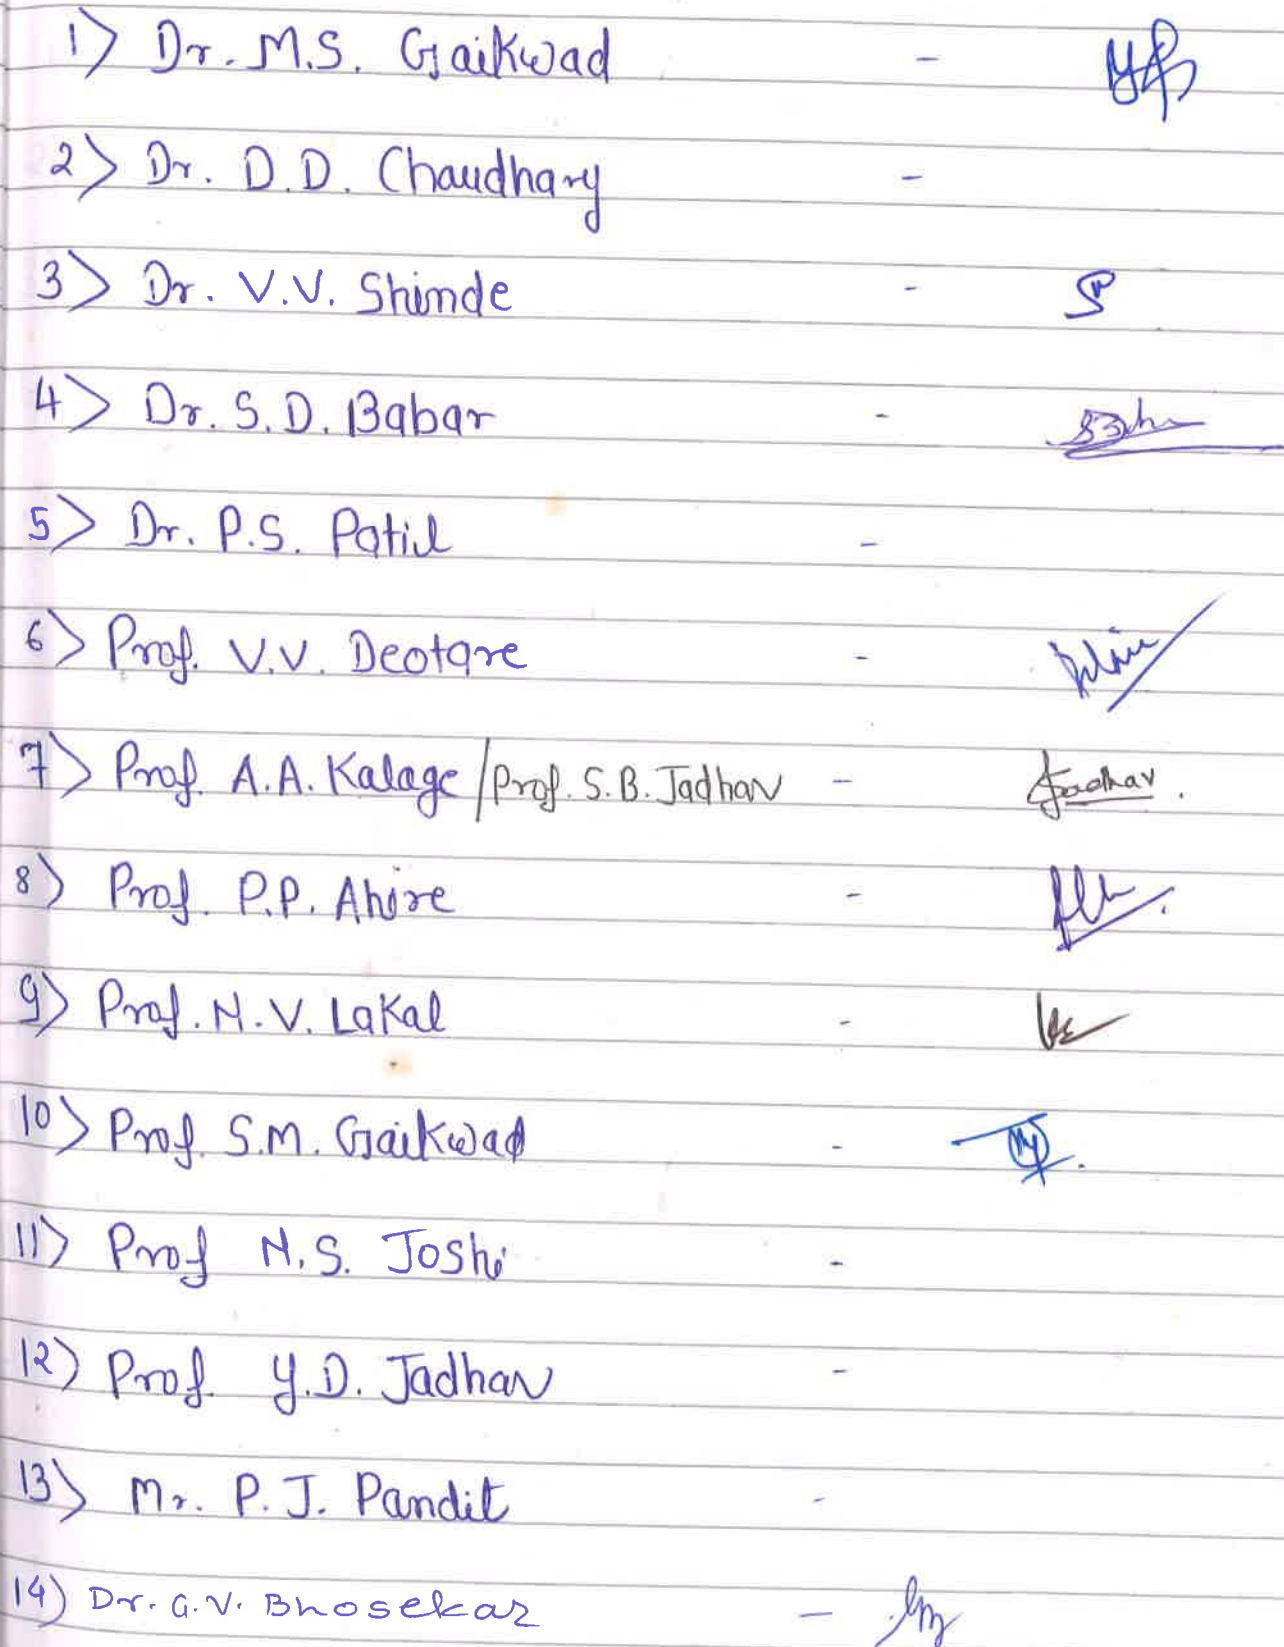 1) Dr. M.S. Gaikwad -
2) Dr. D.D. Chaudhary -
3) Dr. V.V. Shinde -
4) Dr. S.D. Babar -
5) Dr. P.S. Patil -
6) Prof. V.V. Deotare -
7) Prof. A.A. Kalage / Prof. S.B. Jadhav - Jadhav.
8) Prof. P.P. Ahire -
9) Prof. N.V. Lakal -
10) Prof. S.M. Gaikwad -
11) Prof N.S. Joshi -
12) Prof. Y.D. Jadhav -
13) Mr. P.J. Pandit -
14) Dr. G.V. Bhosekar -